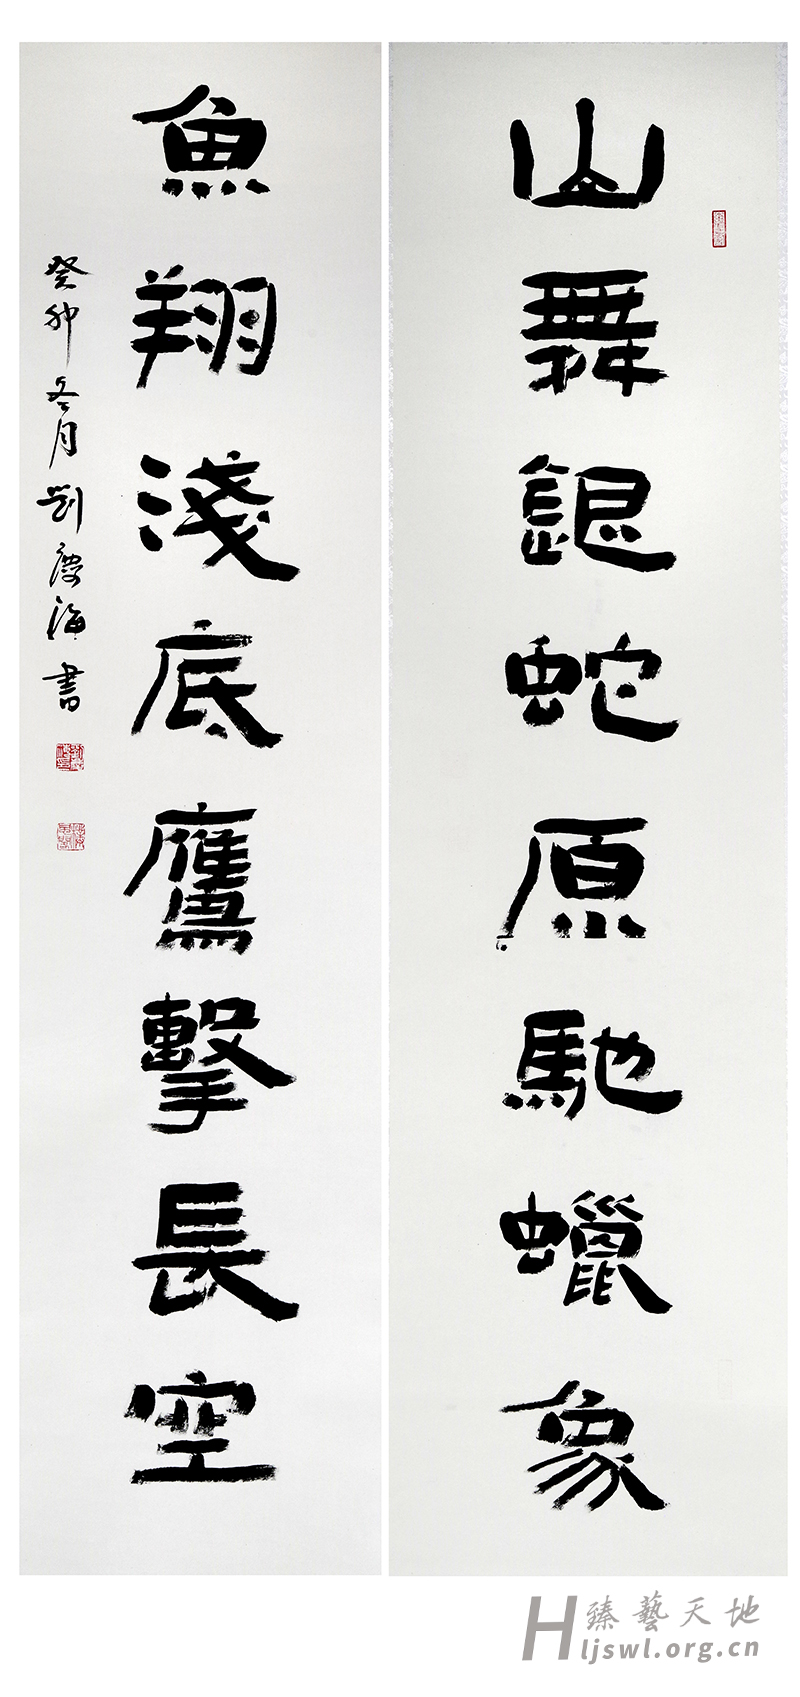 山舞銀蛇原馳蠟象
魚翔淺底鷹擊長空
癸卯冬月劉慶海書
臻藝天地
Hljswl.org.cn